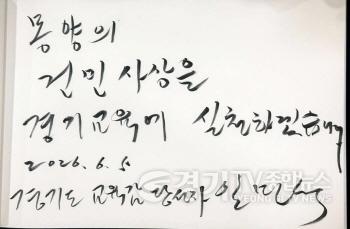 몽양의
건민 사상을
경기교육에 실천하겠습니다
2026.6.5
경기도 교육감 당선자 안민석
경기TV종합뉴스
GYEONGGI TV NEWS